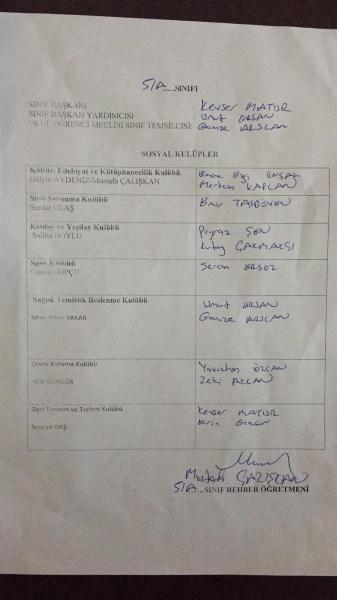 5/A.....SINIFI
SINIF BAŞKANI : Kevser MATUR
SINIF BAŞKAN YARDIMCISI : Umut ERSAN
OKUL ÖĞRENCİ MECLİSİ SINIF TEMSİLCİSİ: Gamze ARSLAN
SOSYAL KULÜPLER
Kültür, Edebiyat ve Kütüphanecilik Kulübü
Gülçin AYDENİZ-Mustafa ÇALIŞKAN
Emine
Mertcan KAPLAN
Sivil Savunma Kulübü
Serdar ULAŞ
TAŞDÖVEN
Kızılay ve Yeşilay Kulübü
Saliha BOYLU
Poyraz ŞEN
ÇAKMAKÇI
Spor Kulübü
TOPÇU
Ceren ERSÖZ
Sağlık Temizlik Beslenme Kulübü
Pınar YAKAR
Umut ERSAN
Gamze ARSLAN
Çevre Koruma Kulübü
GÜNGÖR
Yavuzhan ÖZCAN
Zeki
Gezi Tanıtım ve Turizm Kulübü
Sevcan DAŞ
Kevser MATUR
Mustafa ÇALIŞKAN
5/A...SINIF REHBER ÖĞRETMENİ